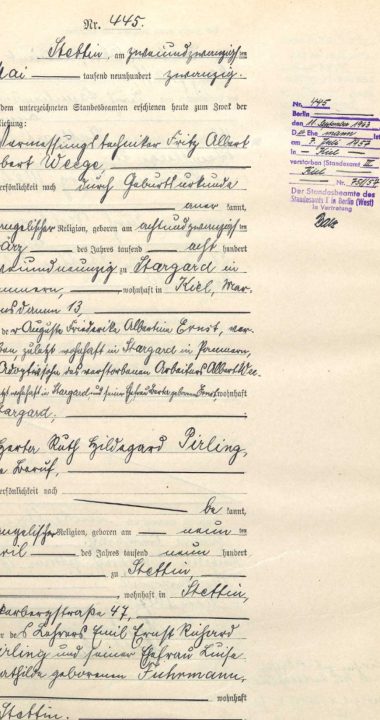 Nr. 445.
Stettin, am zweiundzwanzigsten
Mai tausend neunhundert zwanzig.
dem unterzeichneten Standesbeamten erschienen heute zum Zweck der
ließung:
Vermessungstechniker Fritz Albert
bert Weege,
ersönlichkeit nach durch Geburtsurkunde
aner kannt,
angelischer Religion, geboren am achtundzwanzigsten
ärz des Jahres tausend acht hundert
undneunzig zu Stargard in
mmern, wohnhaft in Kiel, Mar-
damm 13,
der Auguste Friederike Albertine Ernst, ver-
ben, zuletzt wohnhaft in Stargard in Pommern,
Adoptivsohn des verstorbenen Arbeiters Albert
wohnhaft in Stargard und seiner Ehefrau Berta geborenen Ernst wohnhaft
Stargard,
Herta Ruth Hildegard Pirling,
e Beruf,
ersönlichkeit nach
be kannt,
angelischer Religion, geboren am neun ten
pril des Jahres tausend neun hundert
zu Stettin,
wohnhaft in Stettin,
kerbergstraße 47,
er des Lehrers Emil Ernst Richard
irling und seiner Ehefrau Luise
athilde geborenen Fuhrmann,
wohnhaft
Stettin.
Nr. 445
Berlin
den
D Ehe mann
am 7. 1957
in Kiel
verstorben (Standesamt
Kiel
Nr.
Der Standesbeamte des
Standesamts I in Berlin (West)
In Vertretung